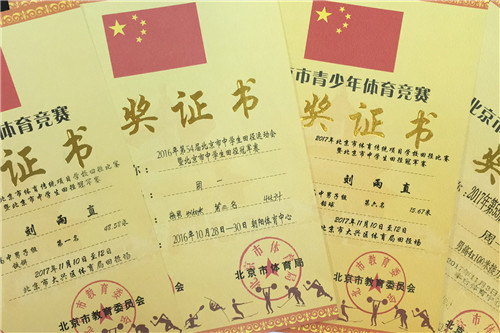 体育竞赛
证书
北京市体育传统项目学校田径比赛
暨北京市中学生田径冠军赛
刘雨直
中男子组
铁饼 第一名
2017年11月10日至12日
北京市大兴区体育局田径场
北京市教育委员会
奖证书
2016年第54届北京市中学生田径运动会
暨北京市中学生田径冠军赛
周一
2016年10月28日—30日 朝阳体育中心
北京市体育局
京市青少年体育竞赛
奖证书
2017年北京市体育传统项目学校田径比赛
暨北京市中学生田径冠军赛
刘雨直
高中男子组
铅球 第六名 15.67米
2017年11月10日至12日
北京市大兴区体育局田径场
北京市教育委员会
北京
奖
2017年
周
男高4x100米